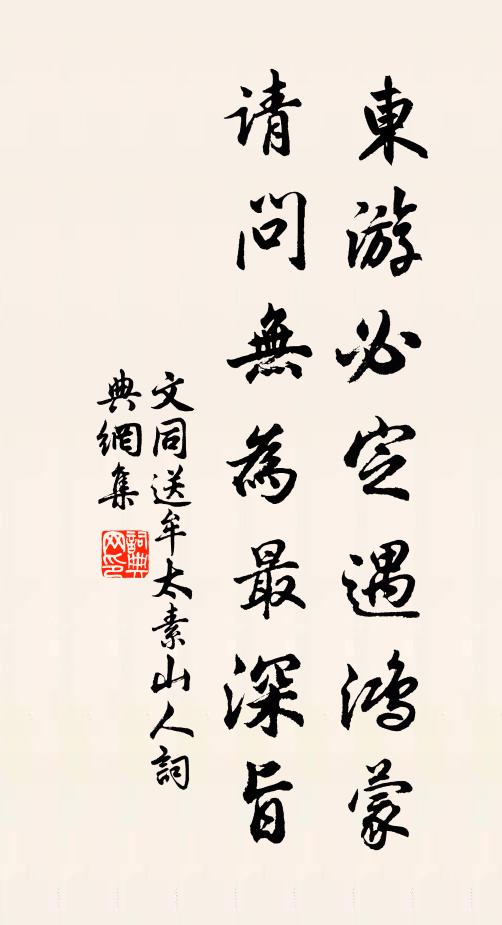 東游必定遇鸿蒙
请问無為最深旨
文同送牟太素山人詞
典網集
詞典
网印